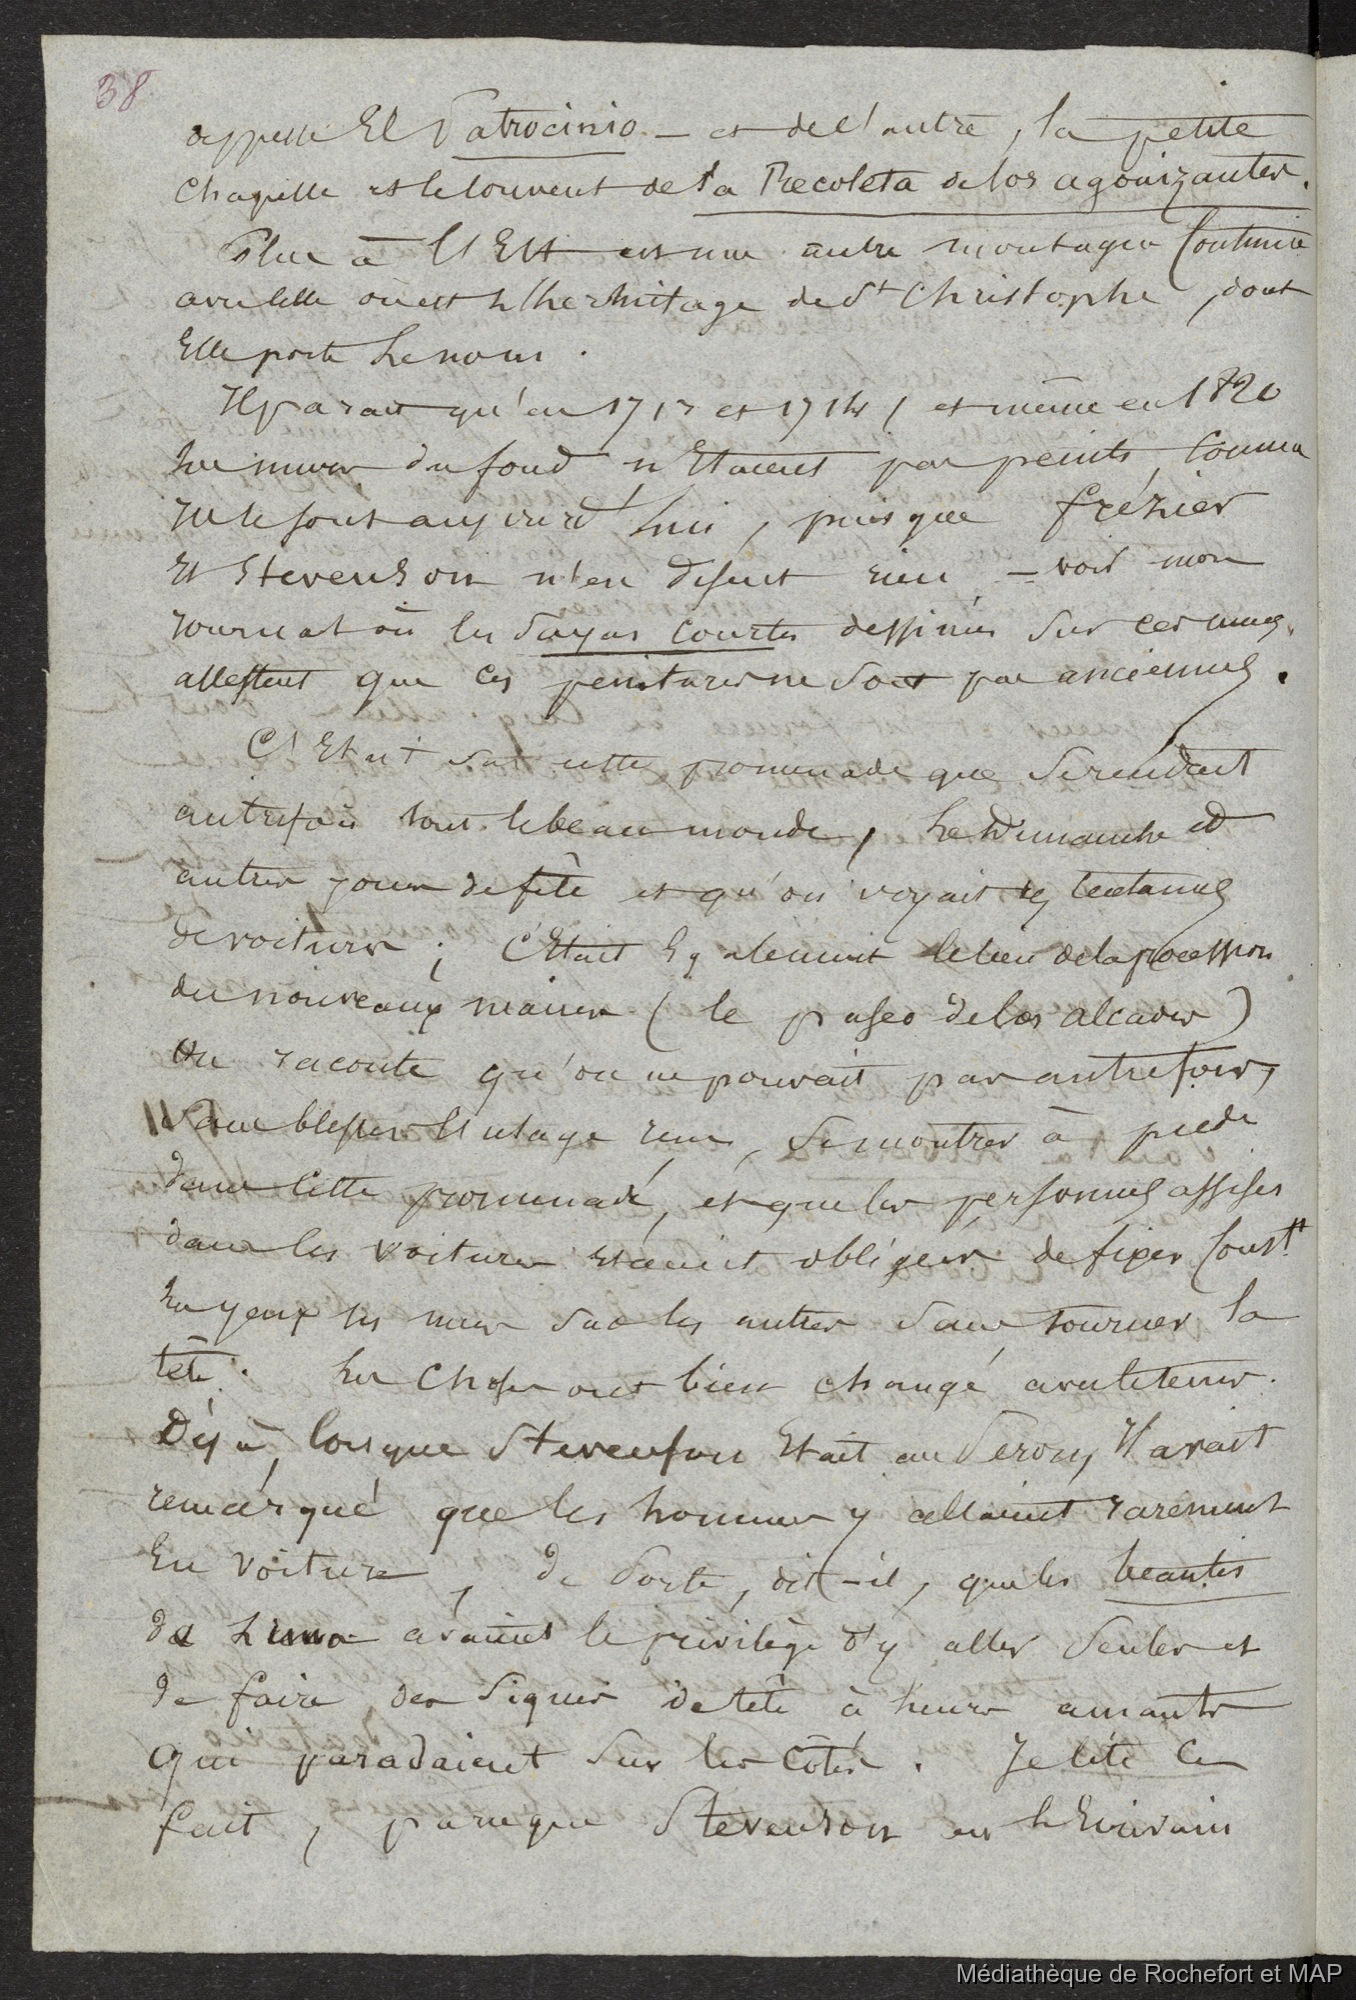 38
appellé El Patrocinio – et de l'autre, la petite
chapelle et le couvent de la Recoleta de los agonizantes.
Plus à l'Est est une autre montagne
avec celle où est l'hermitage de St Christophe, dont
Elle porte le nom.
Il parait qu'en 1713 et 1714, et même en 1820
les murs du fond n'Etaient pas peints, comme
ils le sont aujourd'hui, puisque frézier
Et Stevenson n'en disent rien – voir mon
Journal où les Sayas courtes dessinées sur ces murs,
attestent que ces peintures ne sont pas anciennes.
C'Etait sur cette promenade que se rendait
autrefois tout le beau monde, le Dimanche et
autres jours de fête et qu'on voyait des centaines
de voitures; c'Etait Egalement le lieu de la procession
des nouveaux maires (le paseo de los alcades)
On raconte qu'on ne pouvait pas autrefois,
sans blesser l'usage reçu, se montrer à pieds
dans cette promenade, et que les personnes assises
dans les voitures Etaient obligées de fixer constt
les yeux les unes sur les autres sans tourner la
tête. les choses ont bien changé avec le tems.
Déjà, lorsque Stevenson Etait au Pérou, Il avait
remarqué que les hommes y allaient rarement
En voiture, de sorte, dit-il, que les beautés
de Lima avaient le privilège d'y aller seules et
de faire des signes de tête à leurs amants
qui paradaient sur les côtés. Je cite ce
fait, parceque Stevenson est l'Ecrivain
Médiathèque de Rochefort et MAP